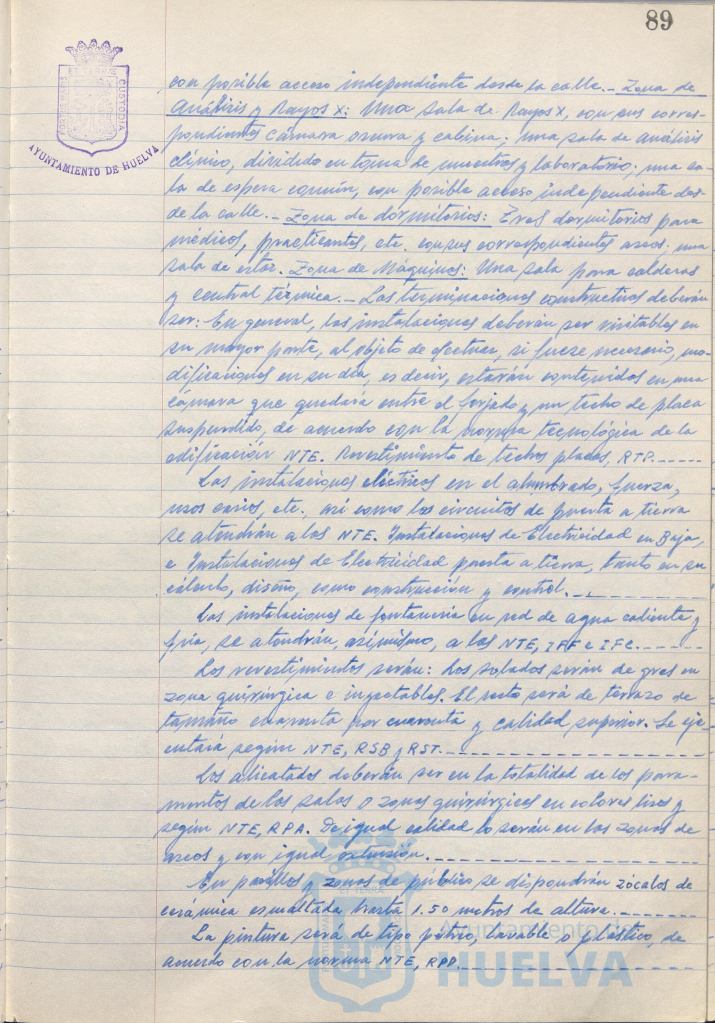 89
PORTUS MARIS ET TERRÆ CUSTODIA
AYUNTAMIENTO DE HUELVA
con posible acceso independiente desde la calle.- Zona de
Análisis y Rayos X: Una sala de Rayos X, con sus corres-
pondientes cámara oscura y cabina; una sala de análisis
clínico, dividido en toma de muestras y laboratorio; una sa-
la de espera común, con posible acceso independiente des-
de la calle.- Zona de dormitorios: Tres dormitorios para
médicos, practicantes, etc. con sus correspondientes aseos. una
sala de estar. Zona de Máquinas: Una sala para calderas
y central térmica.- Las terminaciones constructivas deberán
ser: En general, las instalaciones deberán ser visitables en
su mayor parte, al objeto de efectuar, si fuese necesario, mo-
dificaciones en su día, es decir, estarán contenidos en una
cámara que quedaría entre el forjado y un techo de placa
suspendido, de acuerdo con la norma tecnológica de la
edificación NTE. Revestimiento de techos placas, RTP.------
Las instalaciones eléctricas en el alumbrado, fuerza,
usos varios, etc., así como los circuitos de puesta a tierra
se atendrán a las NTE. Instalaciones de Electricidad en Baja,
e Instalaciones de Electricidad puesta a tierra, tanto en su
cálculo, diseño, como construcción y control.-----
Las instalaciones de fontanería en red de agua caliente y
fría, se atendrán, asimismo, a las NTE, IFF e IFC.------
Los revestimientos serán: Los solados serán de gres en
zona quirúrgica e inyectables. El resto será de terrazo de
tamaño cuarenta por cuarenta y calidad superior. Se eje-
cutará según NTE, RSB y RST.----------
Los alicatados deberán ser en la totalidad de los para-
mentos de las salas o zonas quirúrgicas en colores lisos y
según NTE, RPA. De igual calidad lo serán en las zonas de
aseos y con igual extensión.----------
En pasillos y zonas de público se dispondrán zócalos de
cerámica esmaltada hasta 1.50 metros de altura.-------
La pintura será de tipo pétreo, lavable o plástico, de
acuerdo con la norma NTE, RPP.----------
Ayuntamiento de
HUELVA